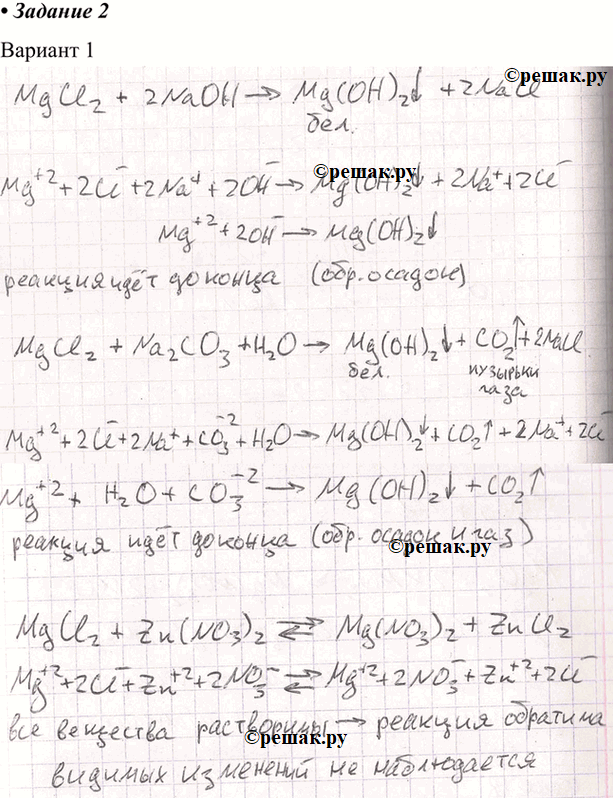 • Задание 2
Вариант 1
©решак.ру
MgCl₂ + 2NaOH → Mg(OH)₂↓ + 2NaCl
бел.
©решак.ру
Mg⁺² + 2Cl⁻ + 2Na⁺ + 2OH⁻ → Mg(OH)₂↓ + 2Na⁺ + 2Cl⁻
Mg⁺² + 2OH⁻ → Mg(OH)₂↓
реакция идёт до конца (обр. осадок)
MgCl₂ + Na₂CO₃ + H₂O → Mg(OH)₂↓ + CO₂↑ + 2NaCl
бел. пузырьки
газа
Mg⁺² + 2Cl⁻ + 2Na⁺ + CO₃⁻² + H₂O → Mg(OH)₂↓ + CO₂↑ + 2Na⁺ + 2Cl⁻
Mg⁺² + H₂O + CO₃⁻² → Mg(OH)₂↓ + CO₂↑
реакция идёт до конца (обр. осадок и газ)
©решак.ру
MgCl₂ + Zn(NO₃)₂ ⇄ Mg(NO₃)₂ + ZnCl₂
Mg⁺² + 2Cl⁻ + Zn⁺² + 2NO₃⁻ ⇄ Mg⁺² + 2NO₃⁻ + Zn⁺² + 2Cl⁻
все вещества растворимы → реакция обратима
©решак.ру
видимых изменений не наблюдается